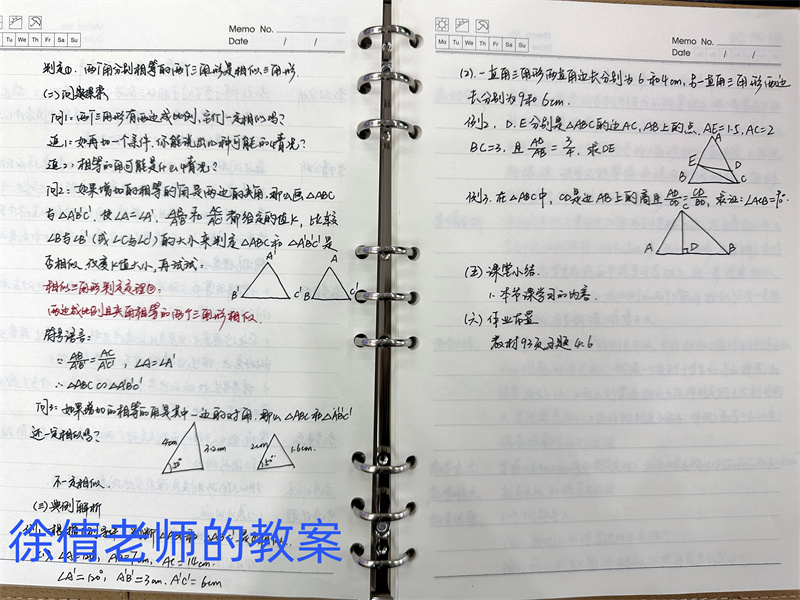 Memo No.
Date / /
Tu We Th Fr Sa Su
判定①. 两个角分别相等的两个三角形是相似三角形.
(二)问题探索
问1: 两个三角形有两边成比例,它们一定相似吗?
追1: 如再加一个条件,你能说出几种可能的情况?
追2: 相等的角可能是什么情况?
问2: 如果增加的相等的角是两边的夹角,那么画△ABC
与△A'B'C', 使∠A=∠A', AB/A'B'和AC/A'C'都给定的值k, 比较
∠B与∠B'(或∠C与∠C')的大小来判定△ABC和△A'B'C'是
否相似. 改变k值大小,再试试:
A' A
B' C' B C'
相似三角形判定定理②:
两边成比例且夹角相等的两个三角形相似.
符号语言:
∵ AB/A'B' = AC/A'C', ∠A=∠A'
∴ △ABC∽△A'B'C'
问3: 如果增加的相等的角是其中一边的对角,那么△ABC和△A'B'C'
还一定相似吗?
4cm 3.2cm 50°
2cm 1.6cm. 50°
不一定相似.
(三)典例解析
∠A=120°, AB=7cm, AC=14cm.
∠A'=120°, A'B'=3cm. A'C'=6cm
徐倩老师的教案
Memo No.
Date / /
Mo Tu We Th Fr Sa Su
(2). 一直角三角形两直角边长分别为6和4cm, 另一直角三角形两边
长分别为9和6cm.
例2, D.E分别是△ABC的边AC,AB上的点, AE=1.5, AC=2
BC=3, 且 AD/AB = 3/4, 求DE
A
E D
B C
例3. 在△ABC中, CD是边AB上的高且AD/CD=CD/BD, 求证:∠ACB=90°.
C
A D B
(五)课堂小结.
1. 本节课学习的内容.
(六)作业布置
教材93页习题4.6